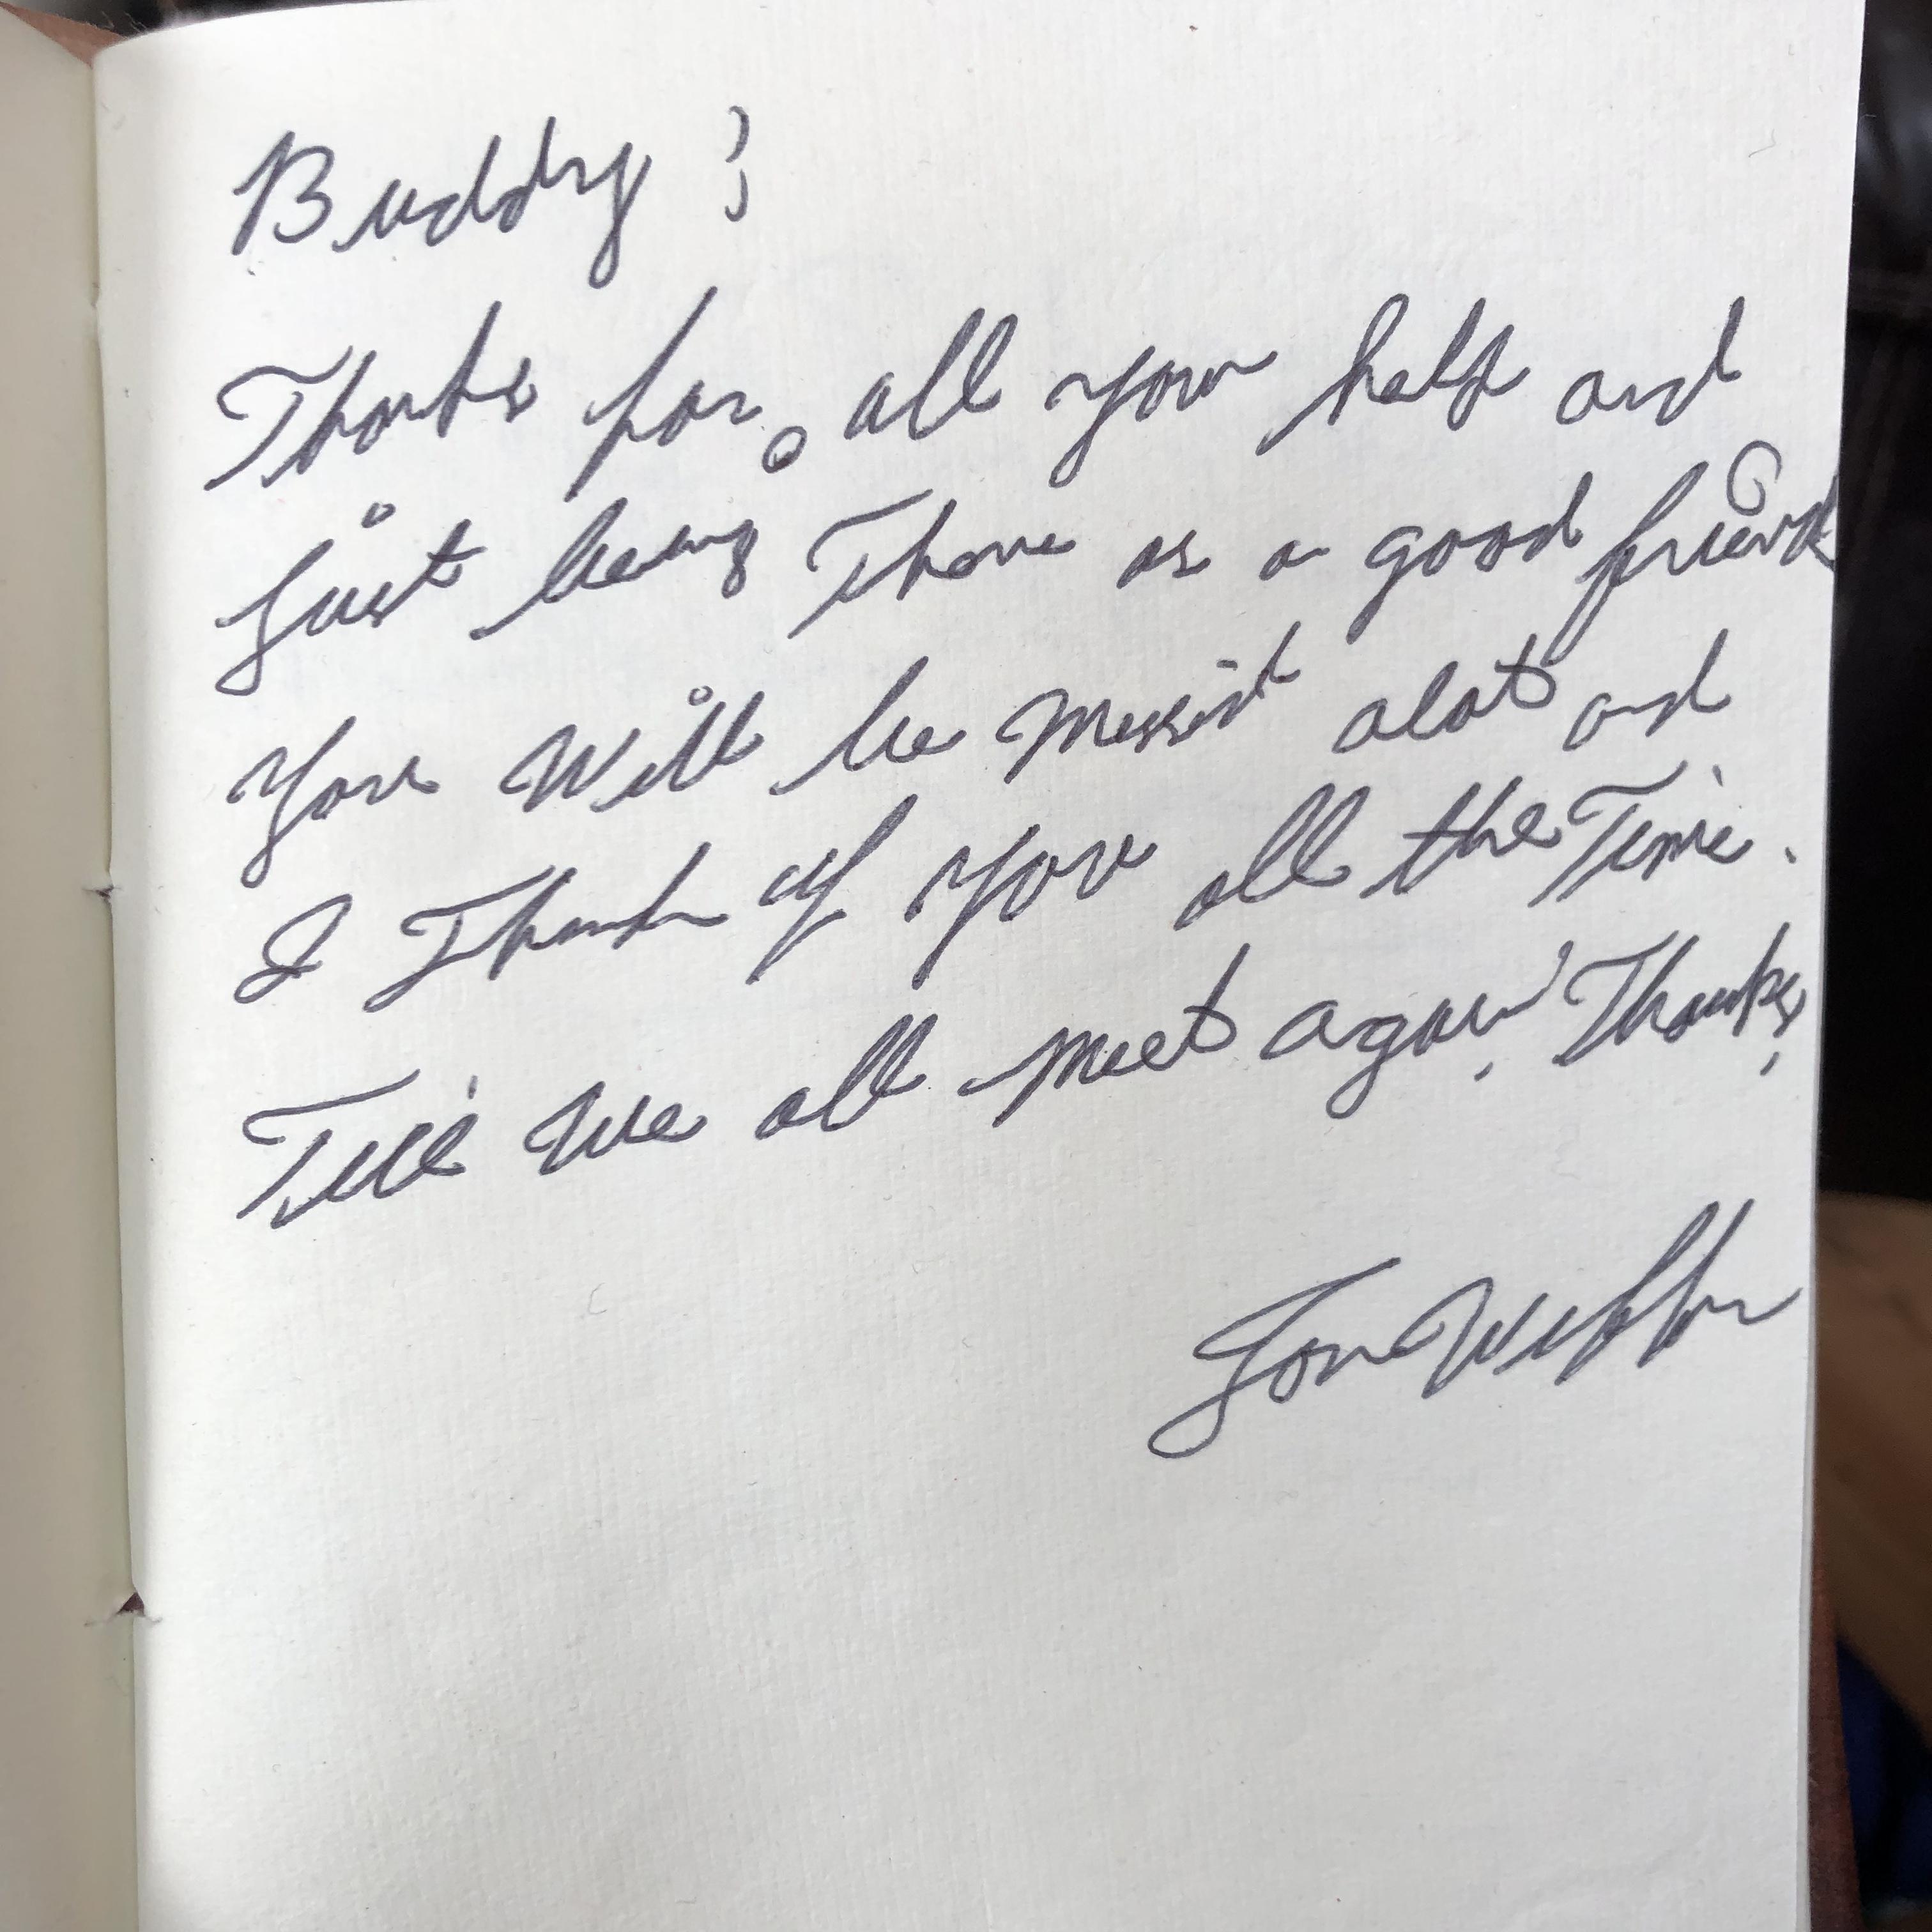 Buddy :
Thanks for all your help and
Just being There as a good friend
You Will be Missist alot and
I Think of You all the Time.
Till We all Meet again! Thanks,
Jon